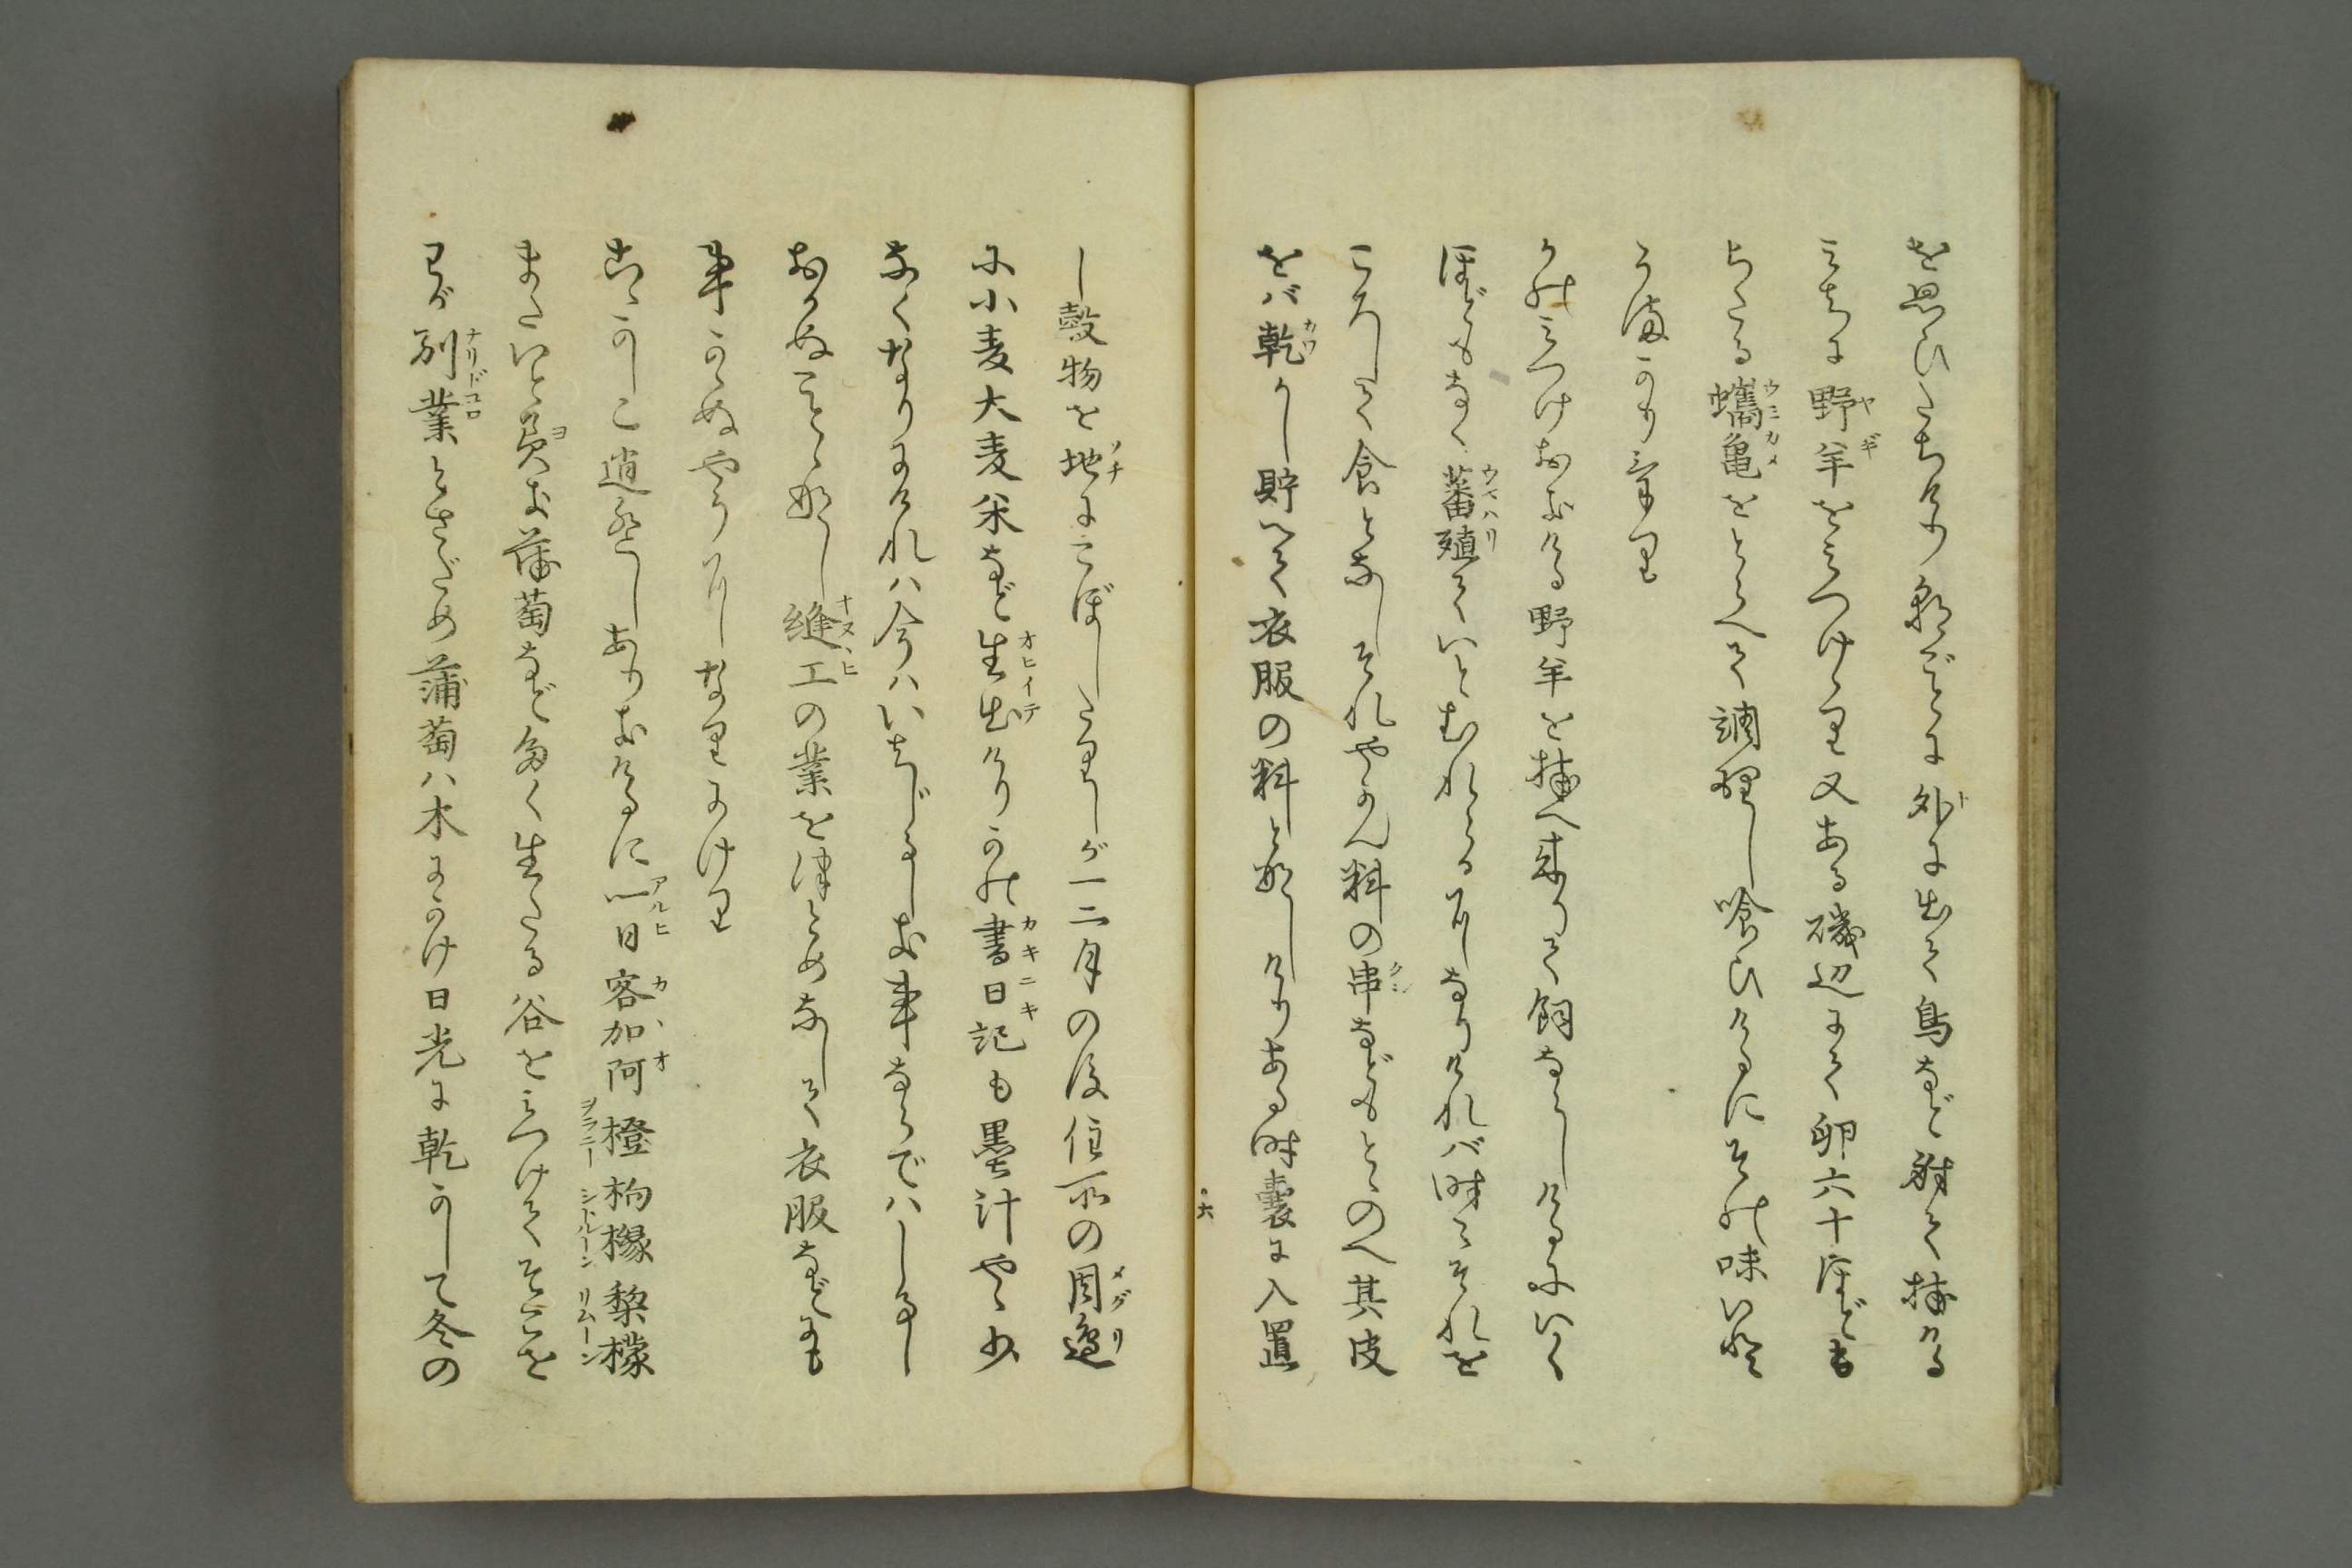 を思ひたちけり朝ごとに外に出て鳥など射て捕ける
うちに野羊をみつけたり又ある磯辺にて卵六十ほども
もちたる蠵亀をとらへて調理し喰ひけるにその味いと
うまかりけり
かのみつけおける野羊を捕へ来りて飼ならしけるにいく
ほどもなく蕃殖ていとむれたるほどなりければ時々それを
ころして食となしそれやかん料の串などもとゝのへ其皮
をバ乾かし貯へて衣服の料となしけりある時嚢に入置
六
し穀物を地にこぼしたりしが一二月の後住所の周邉
に小麦大麦米など生出けりかの書日記も墨汁やゝ少
なくなりにけれハ今ハいちじるしき事ならでハしるし
おかぬことゝなし縫工の業をつとめなして衣服なども
事かゝぬやうになりにけり
こゝかしこ逍遥しありきけるに一日客加阿橙枸櫞黎檬
またいと美き蒲萄など多く生たる谷をみつけてそこを
わが別業とさだめ蒲萄ハ木にかけ日光に乾かして冬の